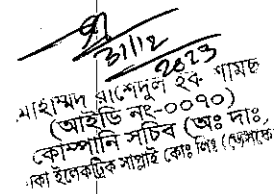 31/12
2023
মোহাম্মদ রাশেদুল হক
(আইডি নং-০০৭০)
কোম্পানি সচিব (অঃ দাঃ)
ইলেকট্রিক সাপ্লাই কোঃ লিঃ (ডেসকো)